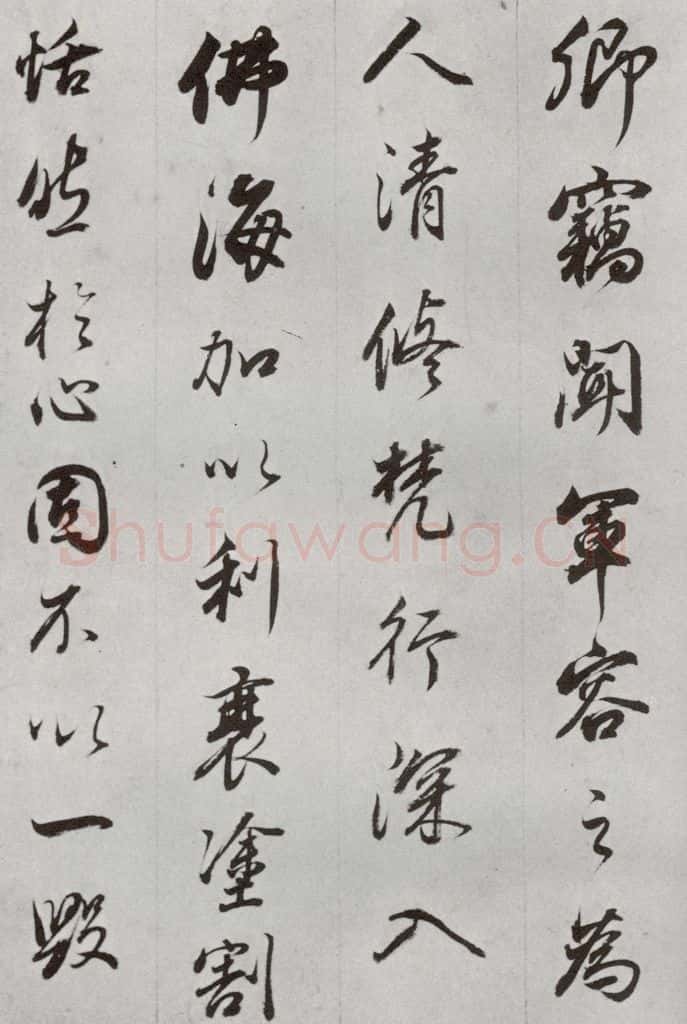 卿竊聞軍容之為
人清修梵行深入
佛海加以利衰塗割
恬然於心固不以一毀
Shufawang.cn